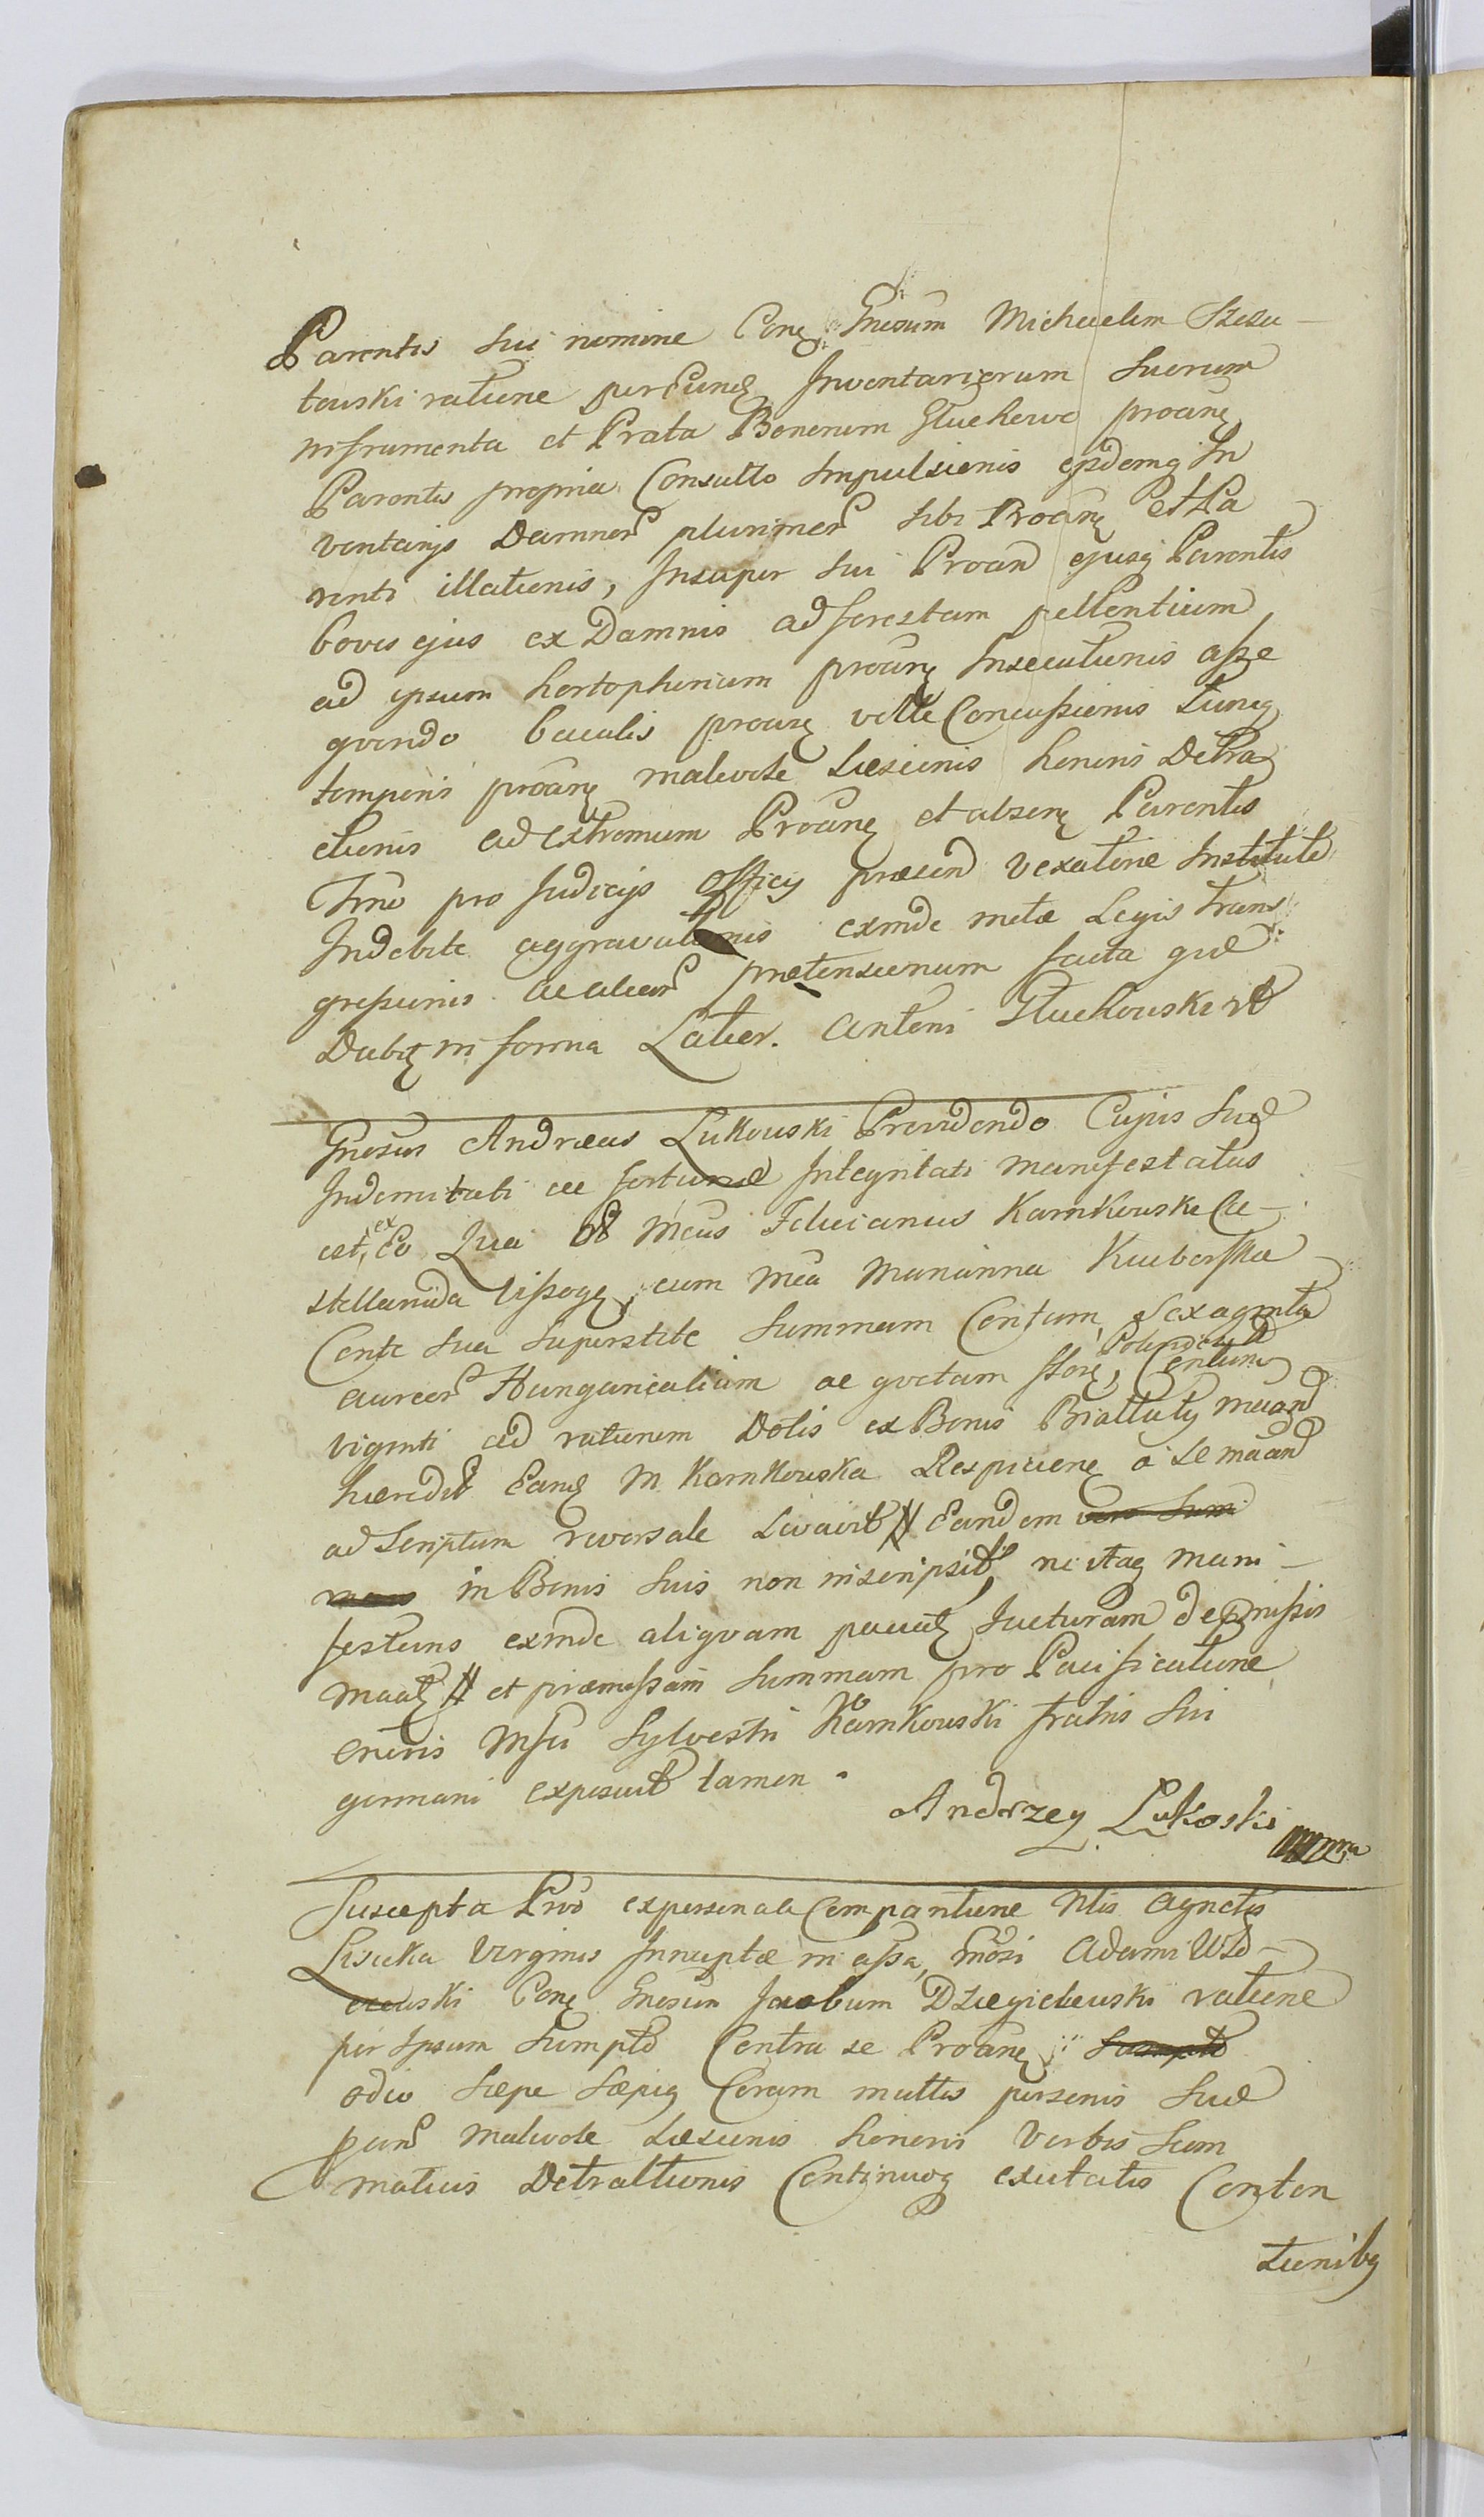 Parentis sui nomine Conq Gnosum Michaelem Szczu-
touski ratione per eund Inventariorum suorum
in frumenta et Prata Bonorum Gluchowo proanq
Parentis propria Consulto Impulsionis ejsdemq In
ventarijs Damnor plurimor sibi Proanq et Pa
renti illationis, Insuper sui Proan ejusq Parentis
boves ejus ex Damnis ad forestam pellentium
ad ipsum hortophinium proanq Insecutionis asse
quendo baculis proanq velle Concussionis Tunq
temporis proanq malevole Læsionis honoris Detra
ctionis ad extremum Proanq et absenq Parentis
Trno pro Judicijs Officij præsend vexatione Institute
Indebite aggravationis exinde metæ Legis trans
gressionis ac aliar prætensionum facta quæ
Dabiq in forma Latior. Antoni Gluchouski
Gnosus Andreas Lukouski Providendo Cujus suæ
Indemitati ac fortunæ Integritati manifestatus
est, ex Eo Quia Ol Mcus Felicianus Karnkouski Ca-
stellanida Vissogq, cum Mca Marianna Kuuborska
Conte sua superstite Summam Centum Sexaginta
aureor Hungaricalium ac quotam flor, Polonical Centum
viginti ad rationem Dotis ex Bonis Bialluty
hæredit Eanq M. Karnkouska Respicienq a se
ad Scriptum reversale Levavit # Eandem vero Sum
mam in Bonis suis non inscripsit, ne itaq mani-
festans exinde aliquam patiat Jacturam de præmissis
maat # et præmissam Summam pro Pacificatione
oneris Msci Sylvestri Karnkouski fratris sui
germani exposuit tamen.
Andrzey Lukoski mpra
Suscepta Prôo ex personali Comparitione Nlis Agnetis
Lisicka Virginis Innuptæ in assa, Gnosi Adami Wło-
czouski Conq Gnosum Jacobum Dziegielewski ratione
per Ipsum sumpto Contra se Proanq Sumpto
odio sæpe sæpiq Coram multis personis suæ
pan malevole Læsionis honoris Verbis sum
matius Detractionis Continuoq excitatis Conten
tionibq